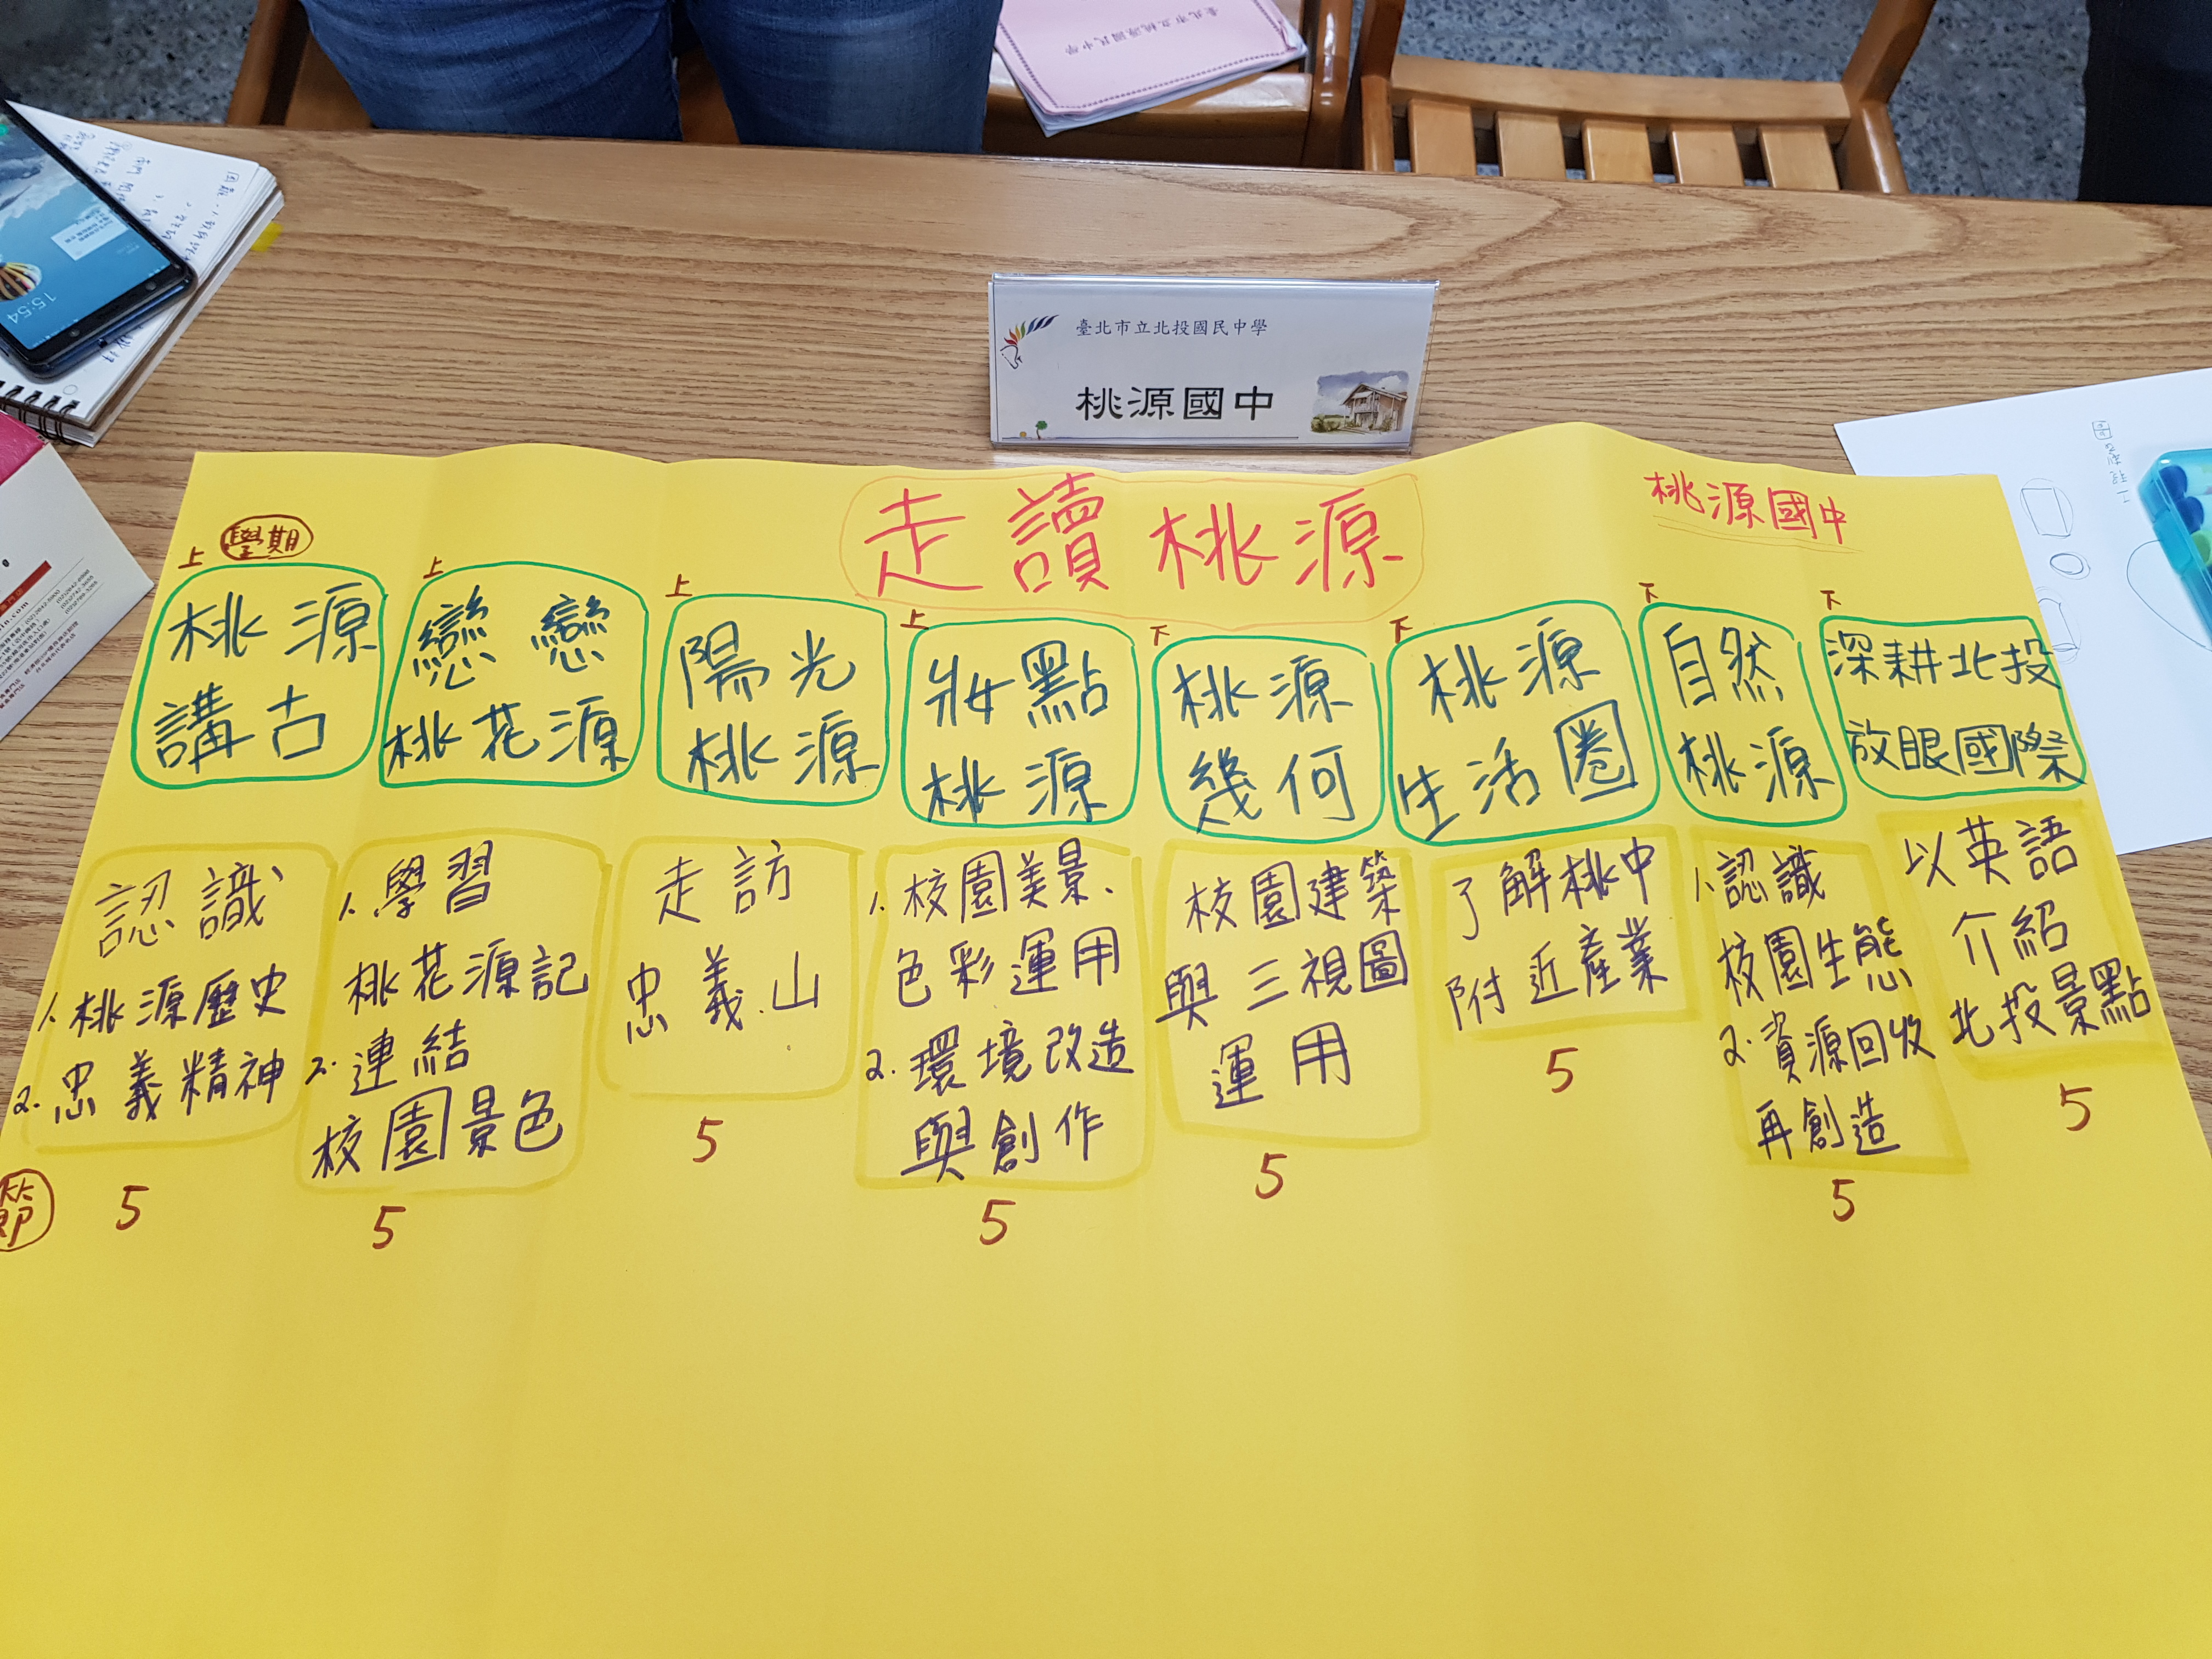 臺北市立桃源國民中學
15:54
臺北市立北投國民中學
桃源國中
走讀桃源
桃源國中
學期
上
桃源
講古
上
戀戀
桃花源
上
陽光
桃源
上
妝點
桃源
下
桃源
幾何
下
桃源
生活圈
下
自然
桃源
下
深耕北投
放眼國際
認識
1. 桃源歷史
2. 忠義精神
1. 學習
桃花源記
2. 連結
校園景色
走訪
忠義山
1. 校園美景、
色彩運用
2. 環境改造
與創作
校園建築
與三視圖
運用
了解桃中
附近產業
1. 認識
校園生態
2. 資源回收
再創造
以英語
介紹
北投景點
節
5
5
5
5
5
5
5
5